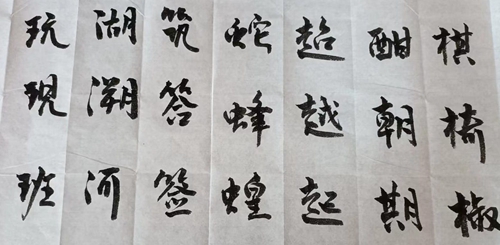 棋椅椒
酣朝期
超越起
蛇蜂蝗
筑答签
湖溯河
玩現班